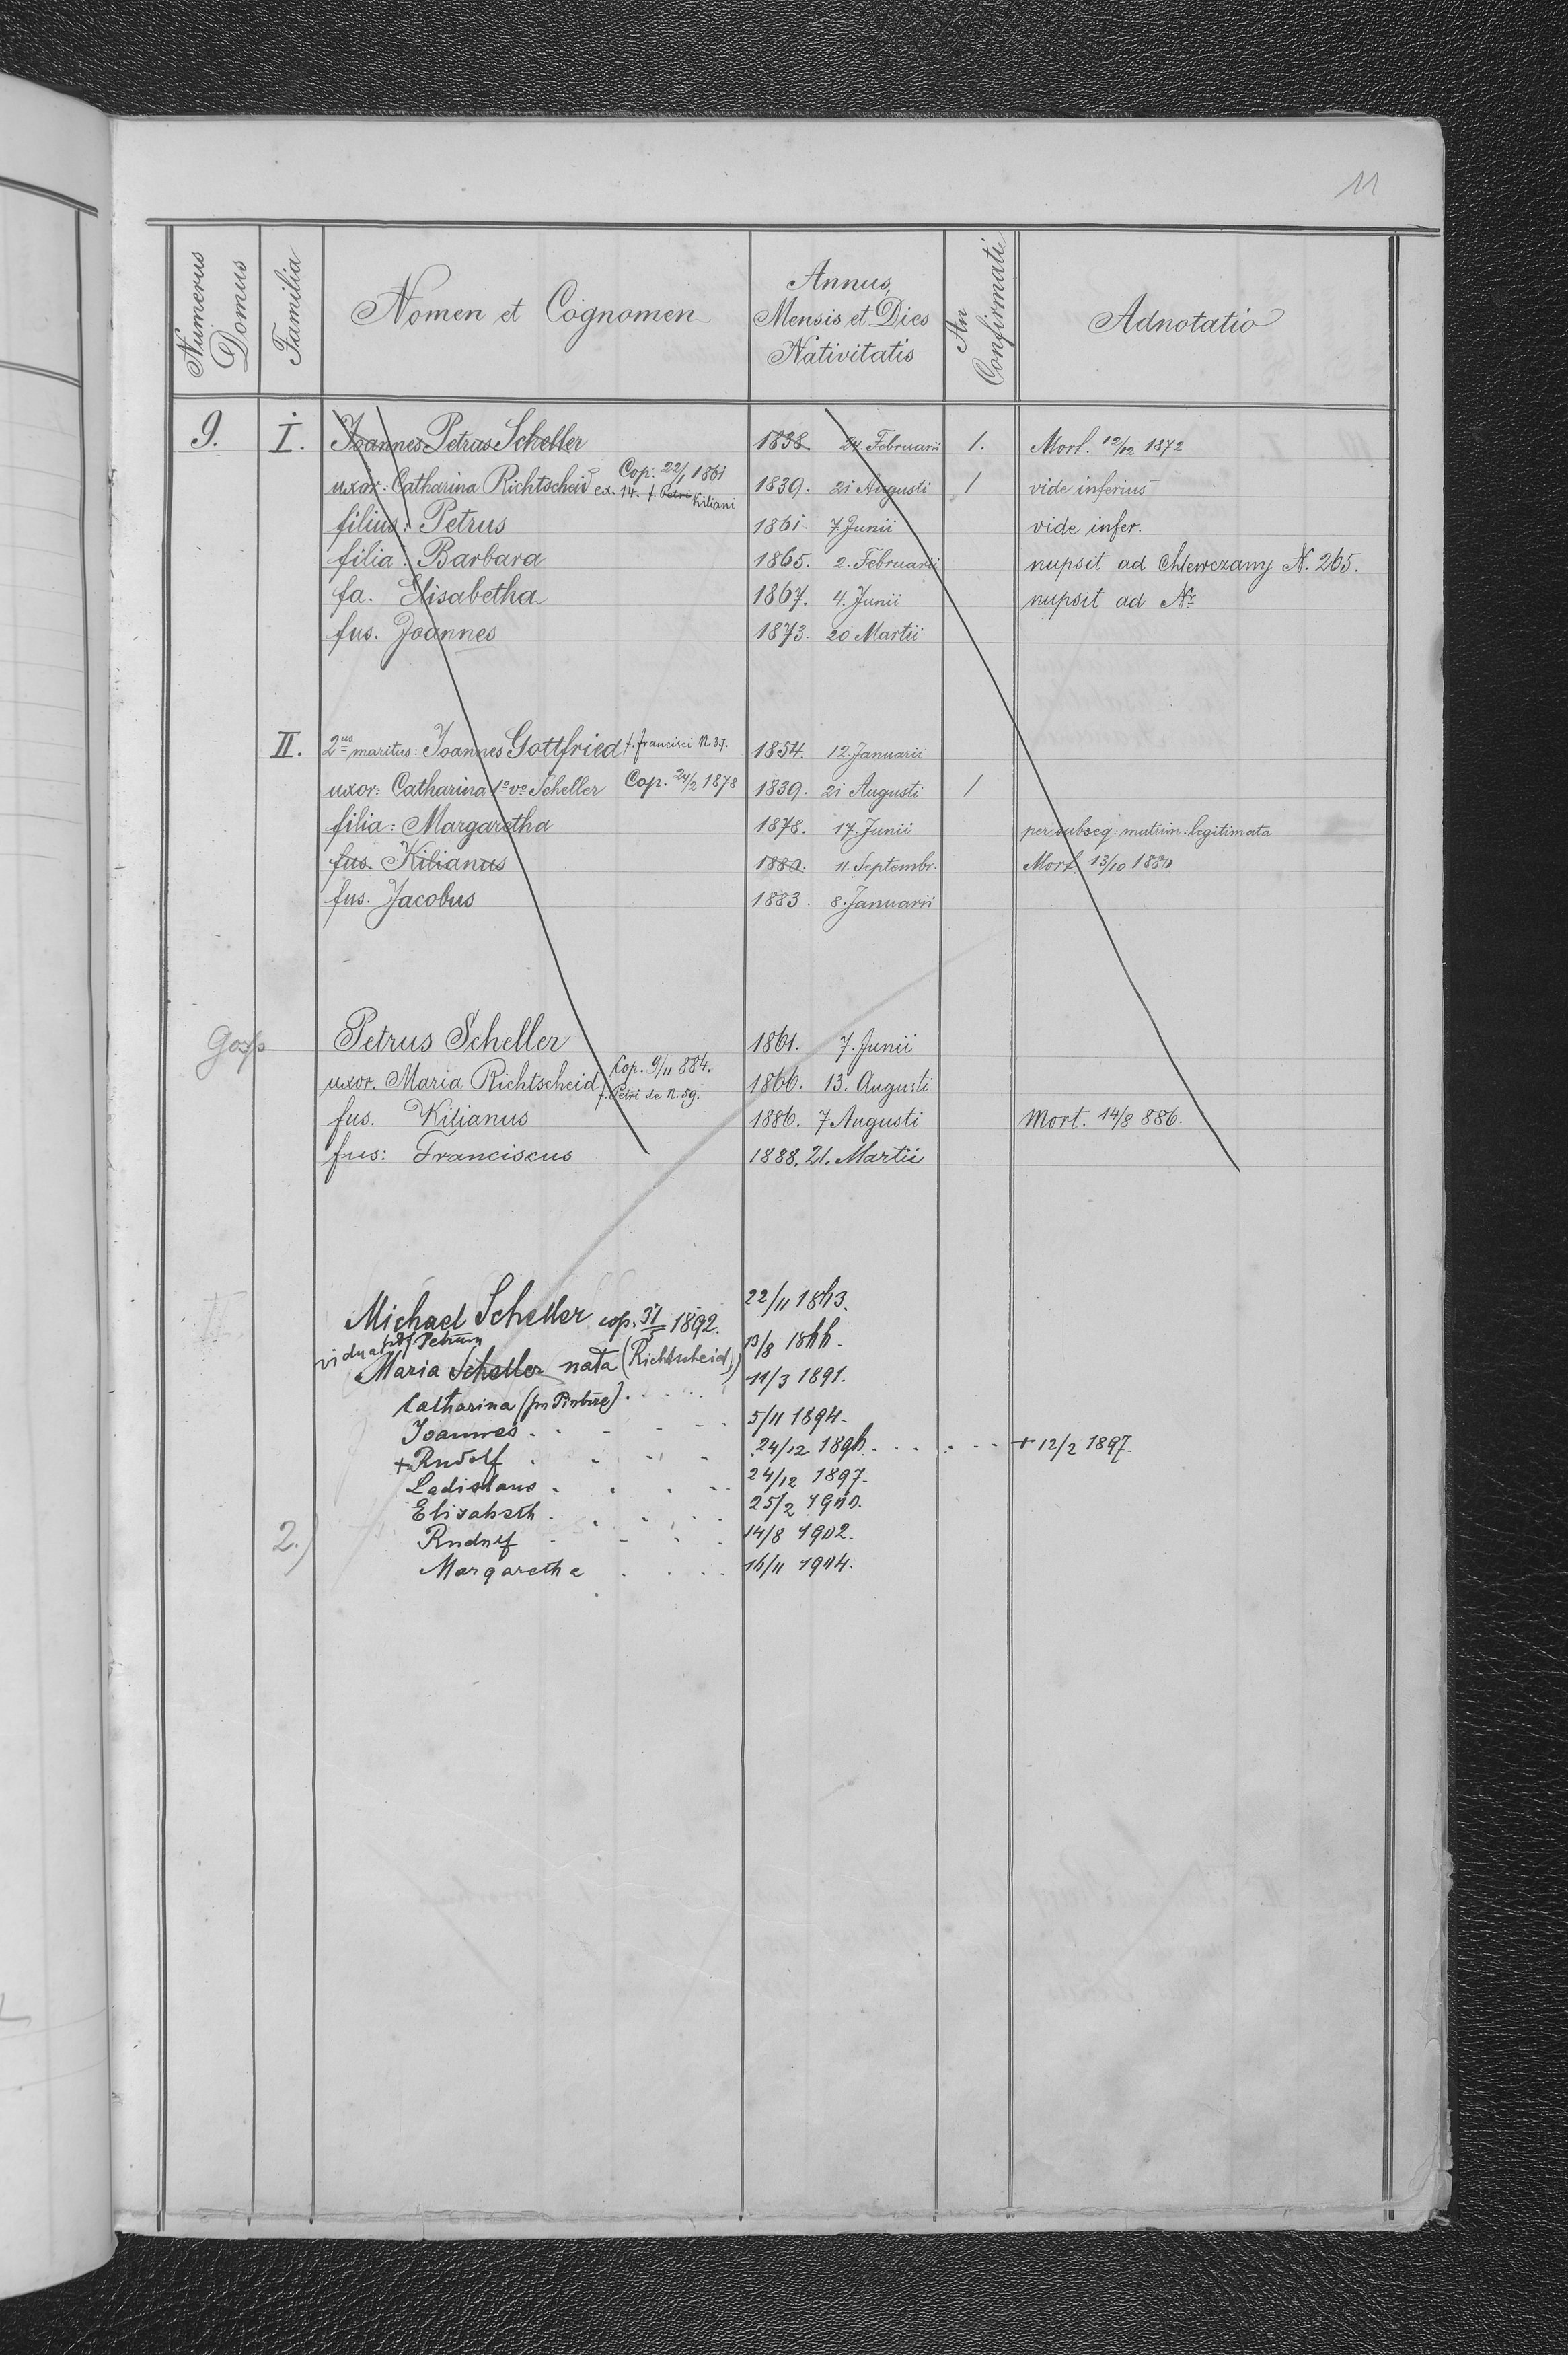 11
Numerus Domus
Familia
Nomen et Cognomen
Annus, Mensis et Dies Nativitatis
An Confirmati
Adnotatio
9. I. Joannes Petrus Scheller 1838. 24. Februarii 1. Mort. 12/12 1872
uxor: Catharina Richtscheid Cop. 22/1 1861 ex. 14. f. Petri Kiliani 1839. 21 Augusti 1 vide inferius
filius: Petrus 1861. 7. Junii vide infer.
filia: Barbara 1865. 2. Februarii nupsit ad Chlewczany N. 265.
fa. Elisabetha 1867. 4. Junii nupsit ad Nr
fus. Joannes 1873. 20 Martii
II. 2us maritus: Joannes Gottfried f. francisci N 37. 1854. 12. Januarii
uxor: Catharina 1o vo Scheller Cop. 24/2 1878 1839. 21 Augusti 1
filia: Margaretha 1878. 17. Junii per subseq: matrim: legitimata
fus. Kilianus 1880. 11. Septembr. Mort. 13/10 1880
fus. Jacobus 1883. 8. Januarii
Petrus Scheller 1861. 7. Junii
uxor. Maria Richtscheid Cop. 9/11 884. f. Petri de N. 59. 1866. 13. Augusti
fus. Kilianus 1886. 7 Augusti Mort. 14/8 886.
fus: Franciscus 1888. 21. Martii
Michael Scheller cop. 31/5 1892. 22/11 1863.
vidua Petrum
Maria Scheller nata (Richtscheid) 13/8 1866.
Catharina 11/3 1891.
Joannes 5/11 1894.
+ Rudolf 24/12 1896. + 12/2 1897.
Ladislaus 24/12 1897.
Elisabeth 25/2 1900.
2.) Rudolf 14/8 1902.
Margaretha 16/11 1904.